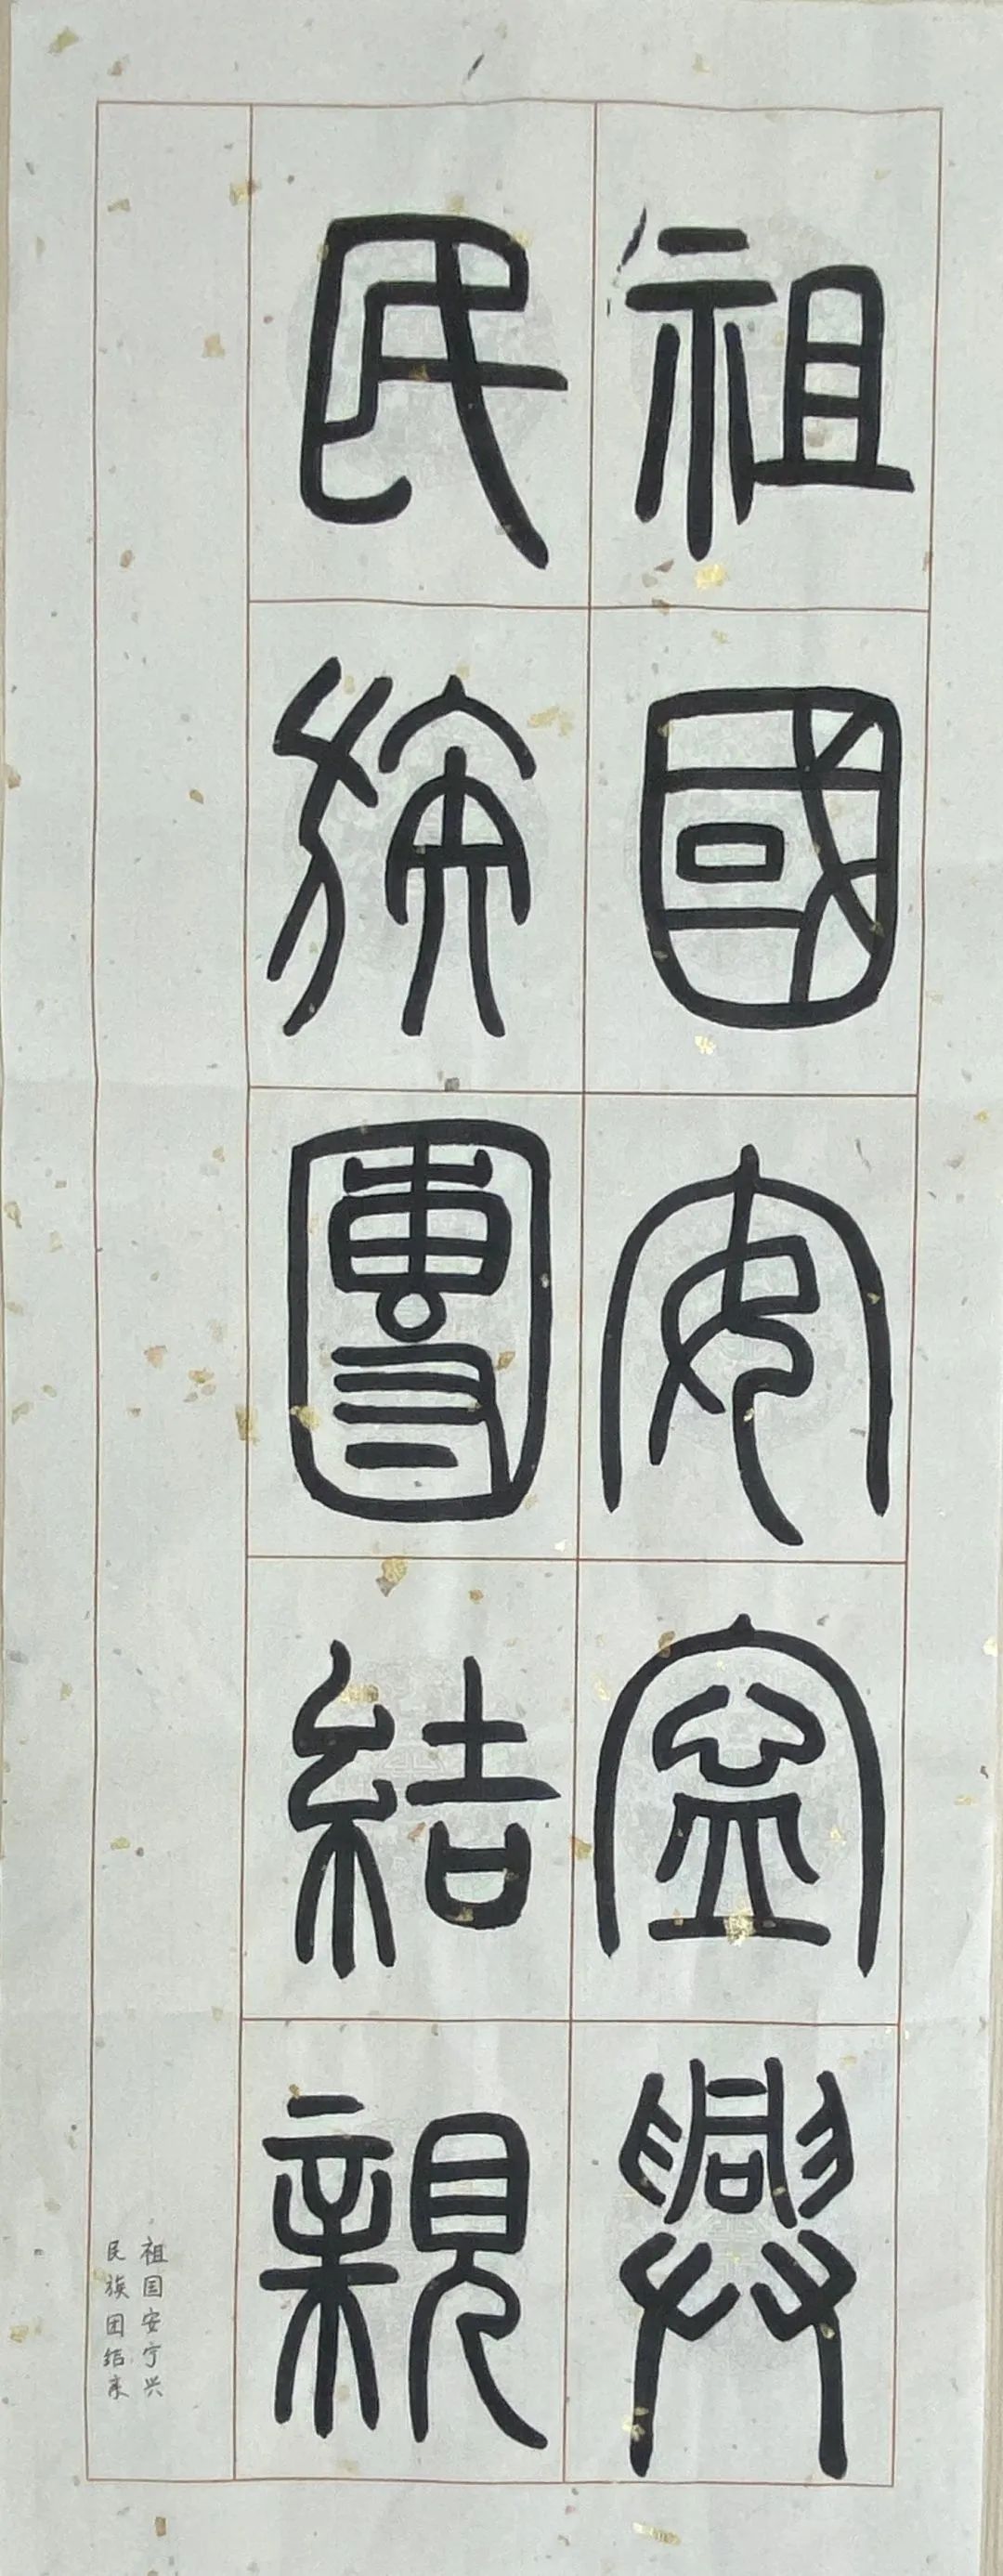 祖國安寍興
民族團結親
祖国安宁兴
民族团结亲